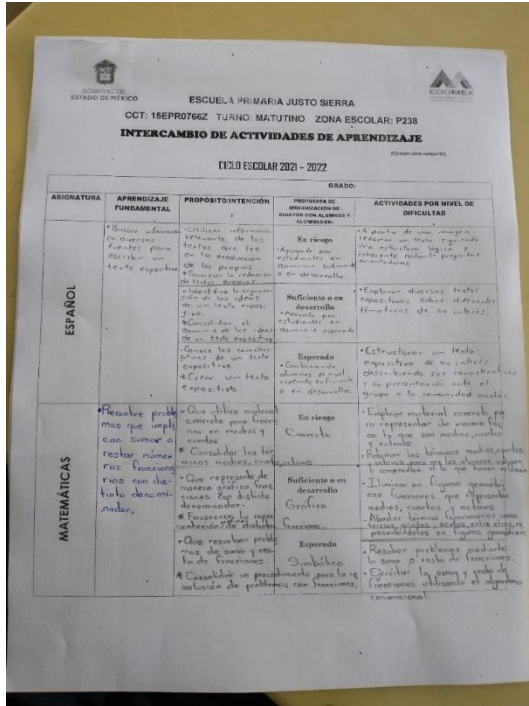 GOBIERNO DEL
ESTADO DE MÉXICO
EDOMEX
ESCUELA PRIMARIA JUSTO SIERRA
CCT: 15EPR0766Z TURNO: MATUTINO ZONA ESCOLAR: P238
INTERCAMBIO DE ACTIVIDADES DE APRENDIZAJE
CICLO ESCOLAR 2021 – 2022
GRADO:
ASIGNATURA
APRENDIZAJE
FUNDAMENTAL
PROPÓSITO/INTENCIÓN
PROPUESTA DE
ORGANIZACIÓN DE
EQUIPOS CON ALUMNOS Y
ALUMNAS EN:
ACTIVIDADES POR NIVEL DE
DIFICULTAD
ESPAÑOL
en diversas
fuentes para
escribir un
texto
-Utilizar información
relevante de los
textos que lee
en la producción
de los propios
de textos propios
En riesgo
• Apoyado por
estudiantes en
dominio
o en desarrollo
• A partir de una imagen
un texto siguiendo
una estructura lógica y
coherente
-Identifica la
de las ideas
de un texto
*Consolidar el
dominio de las ideas
de un texto expositivo
Suficiente o en
desarrollo
• Apoyado por
estudiantes en
dominio esperado
• Explorar diversos textos
expositivos sobre diferentes
temáticas de su interés.
-Conoce las
de un texto
expositivo.
*Crear un texto
expositivo
Esperado
• Combinando
alumnos de nivel
esperado, suficiente
o en desarrollo.
• Estructurar un texto
expositivo de su interés
describiendo sus características
y su presentación ante el
grupo o la comunidad escolar.
MATEMÁTICAS
• Resuelve proble
mas que impli
can sumar o
restar núme
ros fraccion
rios con dis-
tinto denomi-
nador.
• Que utilice material
concreto para
en medios y
cuartos
* Consolidar los tér
minos medios, cuartos, octavos.
En riesgo
Concreta
• Emplear material concreto pa
ra representar de manera
lo que son medios, cuartos
y octavos
• Retomar los términos medios, cuartos
y octavos, para que los alumnos
• Que represente de
manera gráfica, frac
ciones con distinto
denominador.
* Favorecer la repre
sentación de distintas fracciones.
Suficiente o en
desarrollo
Gráfica
• Iluminar en figuras geométri
cas fracciones que representen
medios, cuartos y octavos
• Abordar términos fraccionarios como
en figuras geométricas
• Que resuelvan proble
mas de suma y res-
ta de fracciones.
* Consolidar un procedimiento para la re
solución de problemas con fracciones.
Esperado
Simbólica
• Resolver problemas mediante
la suma o resta de fracciones.
• Ejercitar la suma y resta de
fracciones utilizando el algoritmo
convencional.